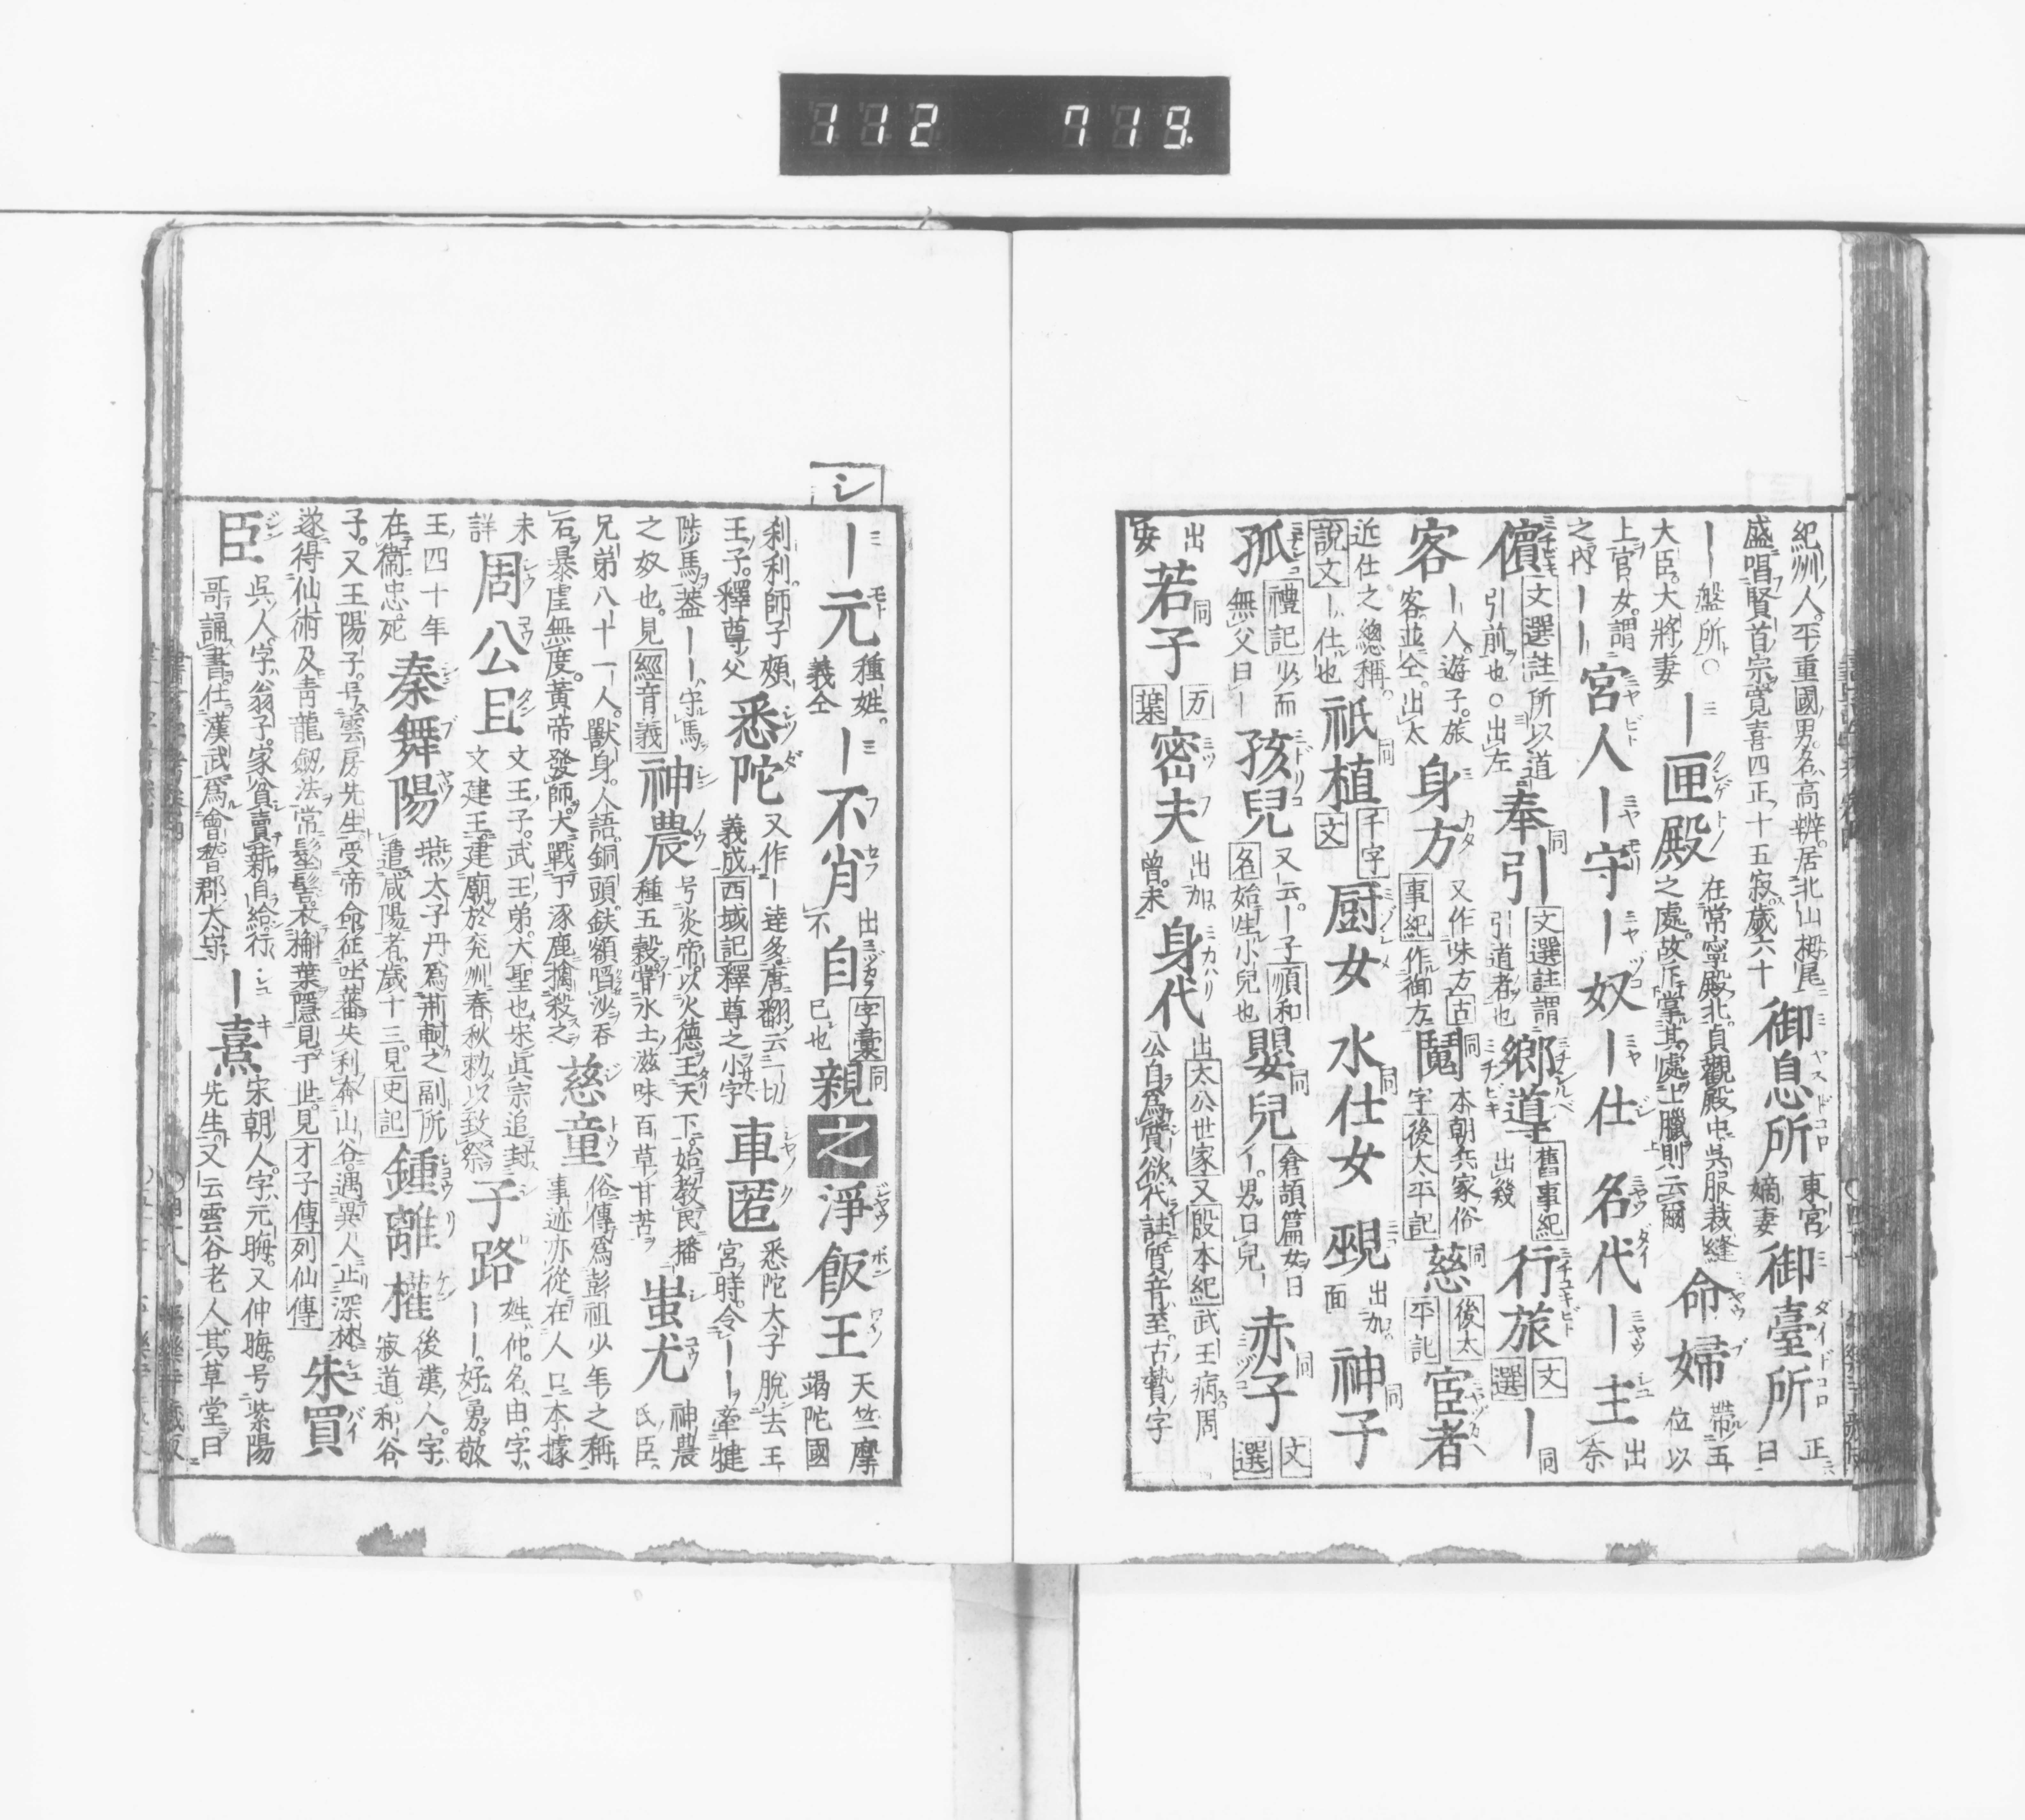 112 719
紀洲人。平重國男。名高辨。居北山栂尾
盛唱賢首宗寬喜四正十五寂歲六十
御息所 東宮嫡妻
御臺所 正曰
｜盤所○
大臣。大將妻
｜匣殿 在常寧殿北。貞觀殿中。吳服裁縫之處。故斥掌其處上﨟則云爾
命婦 帶五位以
上官女。謂之內
｜｜宮人｜守｜奴｜仕 名代｜主 出奈
儐 文選註 所以道引前也○出左
奉引 同 文選註 謂引道者也
鄉導 舊事紀 出幾
行旅 文選
｜ 同
客 ｜人。遊子。旅客。並仝。出太
身方 又作朱方 古事紀 作御方
鬩 同 本朝兵家俗字 後太平記
慈 同 後太平記
宦者
近仕之總稱。 說文 ｜仕也
祇 同
植 千字文
厨女 水仕女 同
覡 出加面
神子 同
孤 禮記 少而無父曰｜
孩兒 又云。｜子 順和名 始生小兒也
嬰兒 同 倉頡篇 女曰｜。男曰兒｜
赤子 同 文選
出安
若子 同 万葉
密夫 出加。曾。末
身代 出 太公世家 又 殷本紀 武王病周公自為質欲代註質音至。古贄字
シ
｜元 種姓。義仝
｜不肖 出不
自 字彙 已也
親 同
之
淨飯王 天竺摩竭陀國
刹利。師子頰王子。釋尊父
悉陀 又作｜達多。唐翻云一切義成 西域記 釋尊之小字
車匿 悉陀太子脫去王宮時。令｜｜牽犍
陟馬蓋｜｜守馬之奴也。見 經音義
神農 号炎帝。以火德王天下。始教民播種五穀嘗水土滋味百草甘苦
蚩尤 神農氏臣。
兄弟八十一人。獸身。人語。銅頭。鉄額啗沙吞石暴虐無度。黃帝發師。大戰于涿鹿擒殺之
慈童 俗傳為彭祖少年之稱事迹亦從在人口本據
未詳
周公旦 文王子。武王弟。大聖也宋眞宗追封文建王。建廟於兖洲春秋勅以致祭
子路 姓仲。名由。字｜｜。好勇。敬
王四十年在衞忠死
秦舞陽 燕太子丹為荊軻之副所遣咸陽者。歲十三。見 史記
鍾離權 後漢人。字寂道。和谷
子。又王陽子。号雲房先生受帝命征吐蕃失利奔山谷。遇異人止深林。遂得仙術及靑龍劔法常髼髻衣槲葉隱見于世。見 才子傳 列仙傳
朱買
臣 吳人。字翁子。家貧賣薪自給。行哥誦書。仕漢武為會稽郡太守
｜熹 宋朝人。字元晦。又仲晦。号紫陽先生。又云雲谷老人。其草堂曰